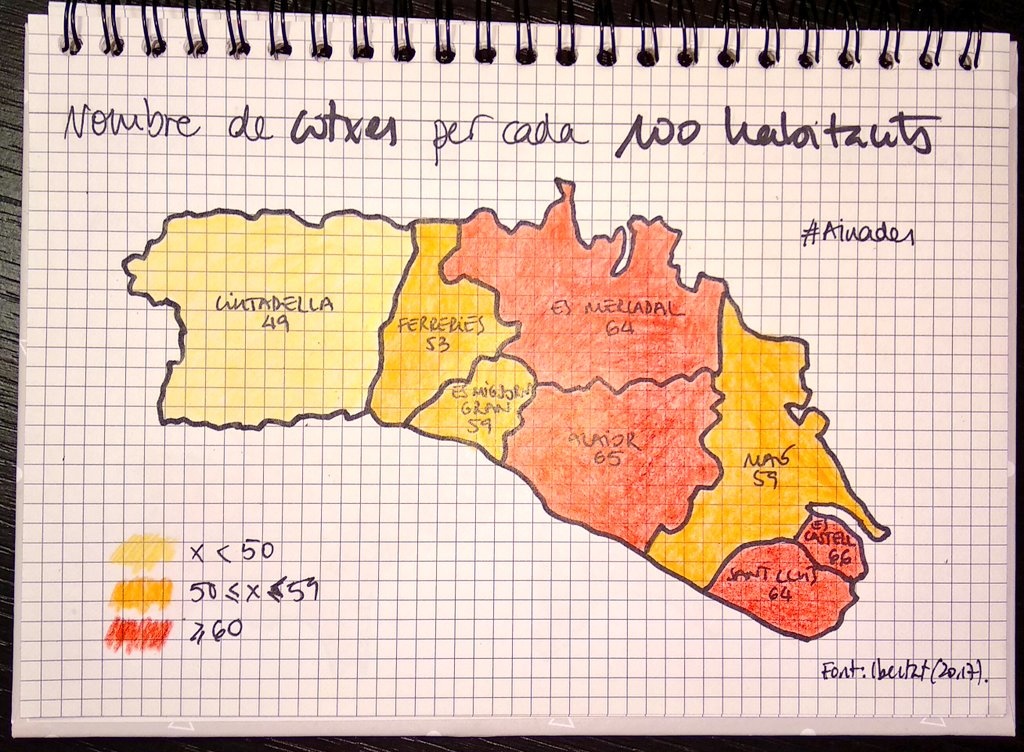 Nombre de cotxes per cada 100 habitants
#Ainades
CIUTADELLA
49
FERRERIES
53
ES MERCADAL
64
ES MIGJORN
GRAN
59
ALAIOR
65
MAÓ
59
ES
CASTELL
66
SANT LLUÍS
64
x < 50
50 ≤ x ≤ 59
≥ 60
Font: Ibestat (2017).